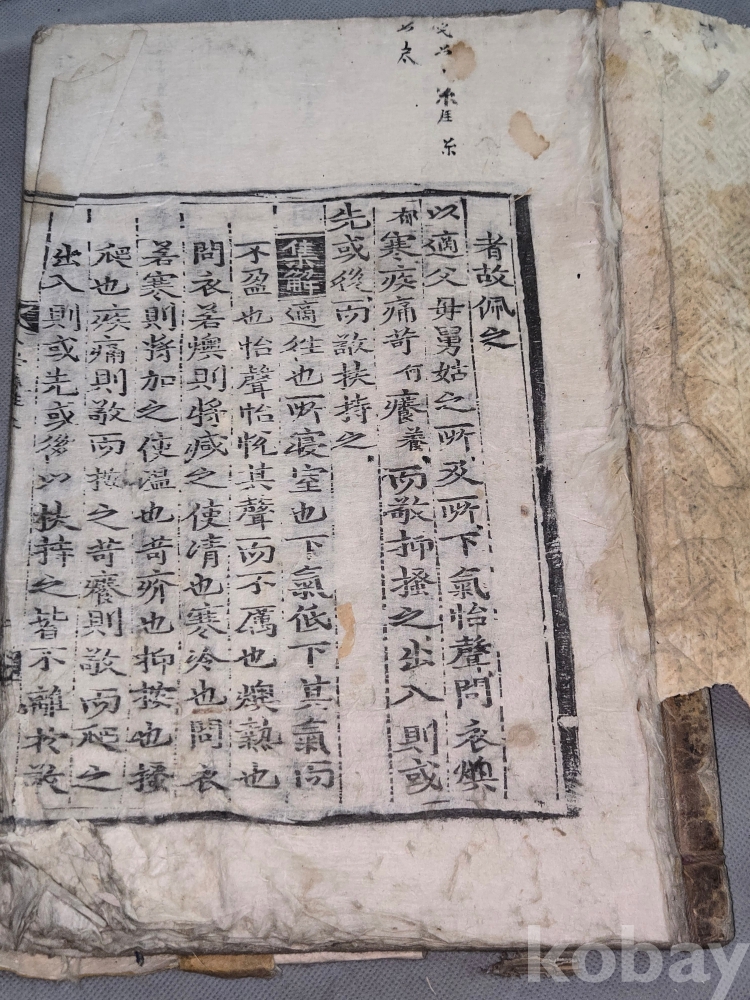 太
者故佩之
以適父母舅姑之所及所下氣怡聲問衣燠
郁寒疾痛苛何癢養而敬抑搔之出入則或
先或後而敬扶持之
集解適往也所寢室也下氣低下其氣而
不盈也怡聲怡悅其聲而不厲也燠熱也
問衣若燠則將减之使凊也寒冷也問衣
若寒則將加之使溫也苛疥也抑按也搔
爬也疾痛則敬而按之苛癢則敬而爬之
出入則或先或後以扶持之皆不離於敬
kobay